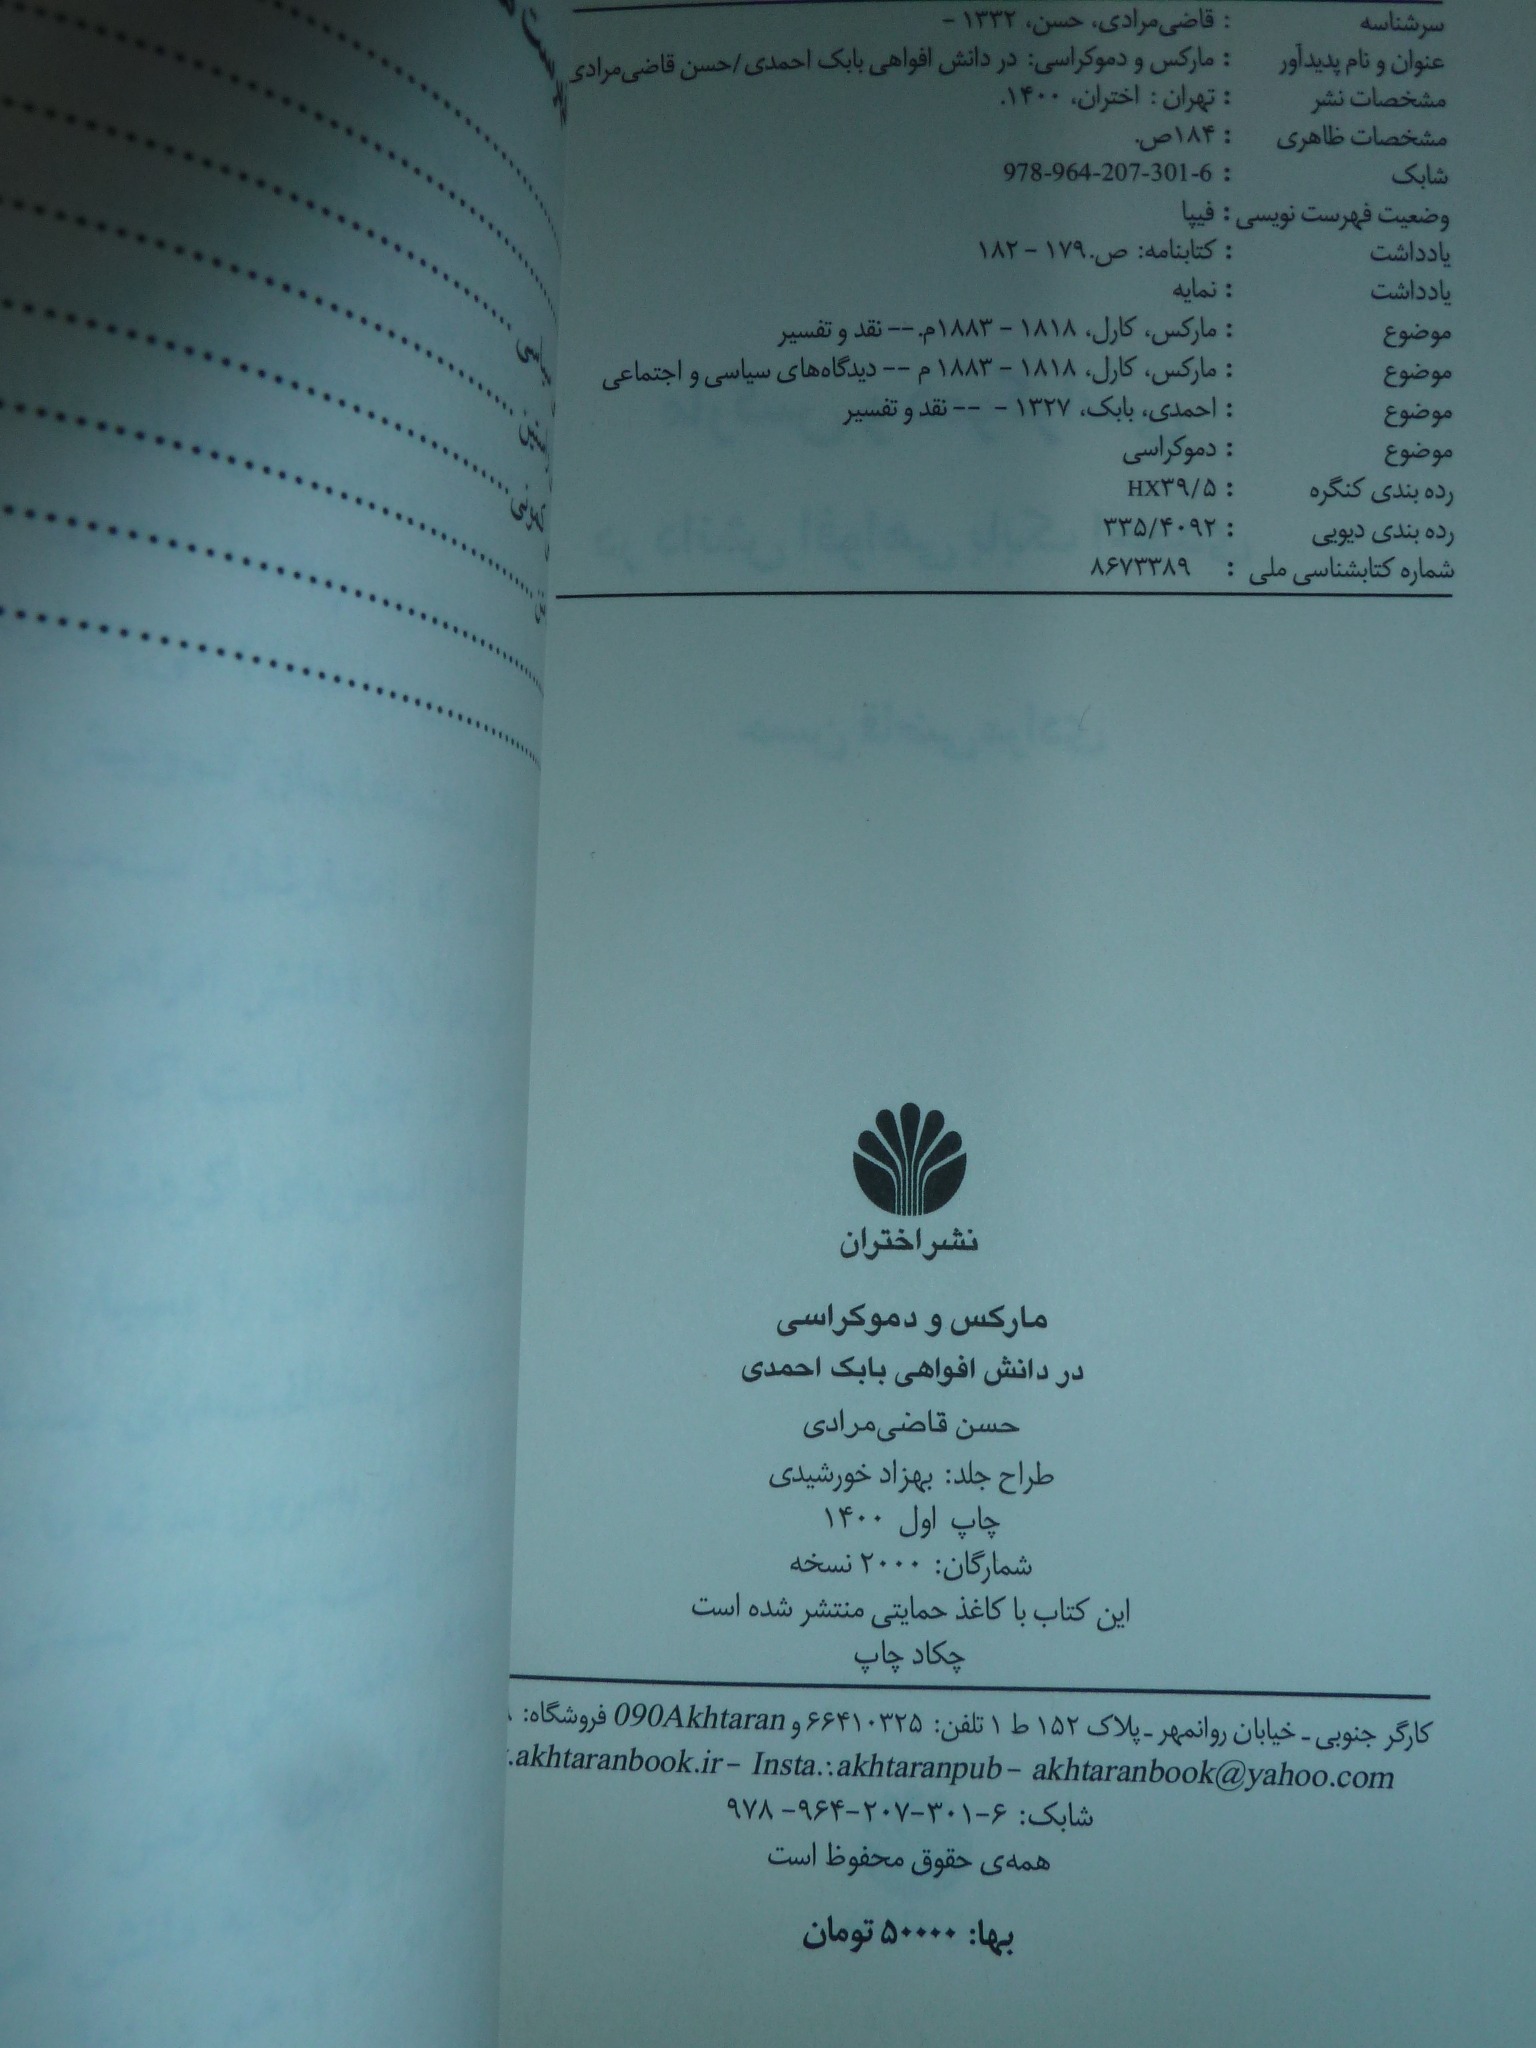 سرشناسه : قاضی‌مرادی، حسن، ۱۳۳۲ -
عنوان و نام پدیدآور : مارکس و دموکراسی: در دانش افواهی بابک احمدی/حسن قاضی‌مرادی
مشخصات نشر : تهران : اختران، ۱۴۰۰.
مشخصات ظاهری : ۱۸۴ص.
شابک : 978-964-207-301-6
وضعیت فهرست نویسی : فیپا
یادداشت : کتابنامه: ص.۱۷۹ - ۱۸۲
یادداشت : نمایه
موضوع : مارکس، کارل، ۱۸۱۸ - ۱۸۸۳م.-- نقد و تفسیر
موضوع : مارکس، کارل، ۱۸۱۸ - ۱۸۸۳ م -- دیدگاه‌های سیاسی و اجتماعی
موضوع : احمدی، بابک، ۱۳۲۷ - -- نقد و تفسیر
موضوع : دموکراسی
رده بندی کنگره : HX۳۹/۵
رده بندی دیویی : ۳۳۵/۴۰۹۲
شماره کتابشناسی ملی : ۸۶۷۳۳۸۹
نشر اختران
مارکس و دموکراسی
در دانش افواهی بابک احمدی
حسن قاضی‌مرادی
طراح جلد: بهزاد خورشیدی
چاپ اول ۱۴۰۰
شمارگان: ۲۰۰۰ نسخه
این کتاب با کاغذ حمایتی منتشر شده است
چکاد چاپ
کارگر جنوبی ـ خیابان روانمهر ـ پلاک ۱۵۲ ط ۱ تلفن: ۶۶۴۱۰۳۲۵ و 090Akhtaran فروشگاه:
.akhtaranbook.ir - Insta.:akhtaranpub - akhtaranbook@yahoo.com
شابک: ۶-۳۰۱-۲۰۷-۹۶۴- ۹۷۸
همه‌ی حقوق محفوظ است
بها: ۵۰۰۰۰ تومان